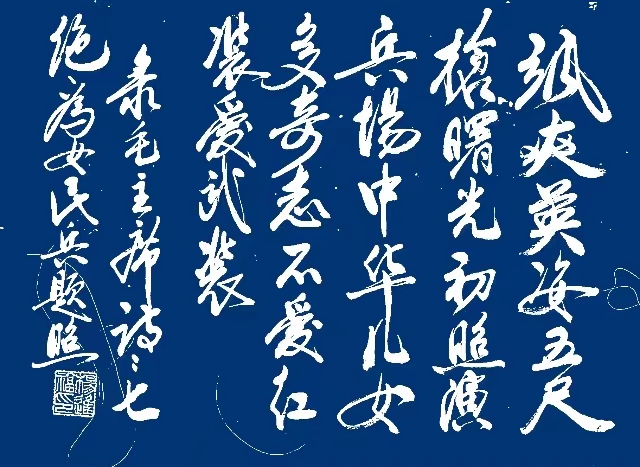 飒爽英姿五尺
槍曙光初照演
兵場中华儿女
多奇志不爱红
装爱武装
录毛主席诗:七
绝、為女民兵题照